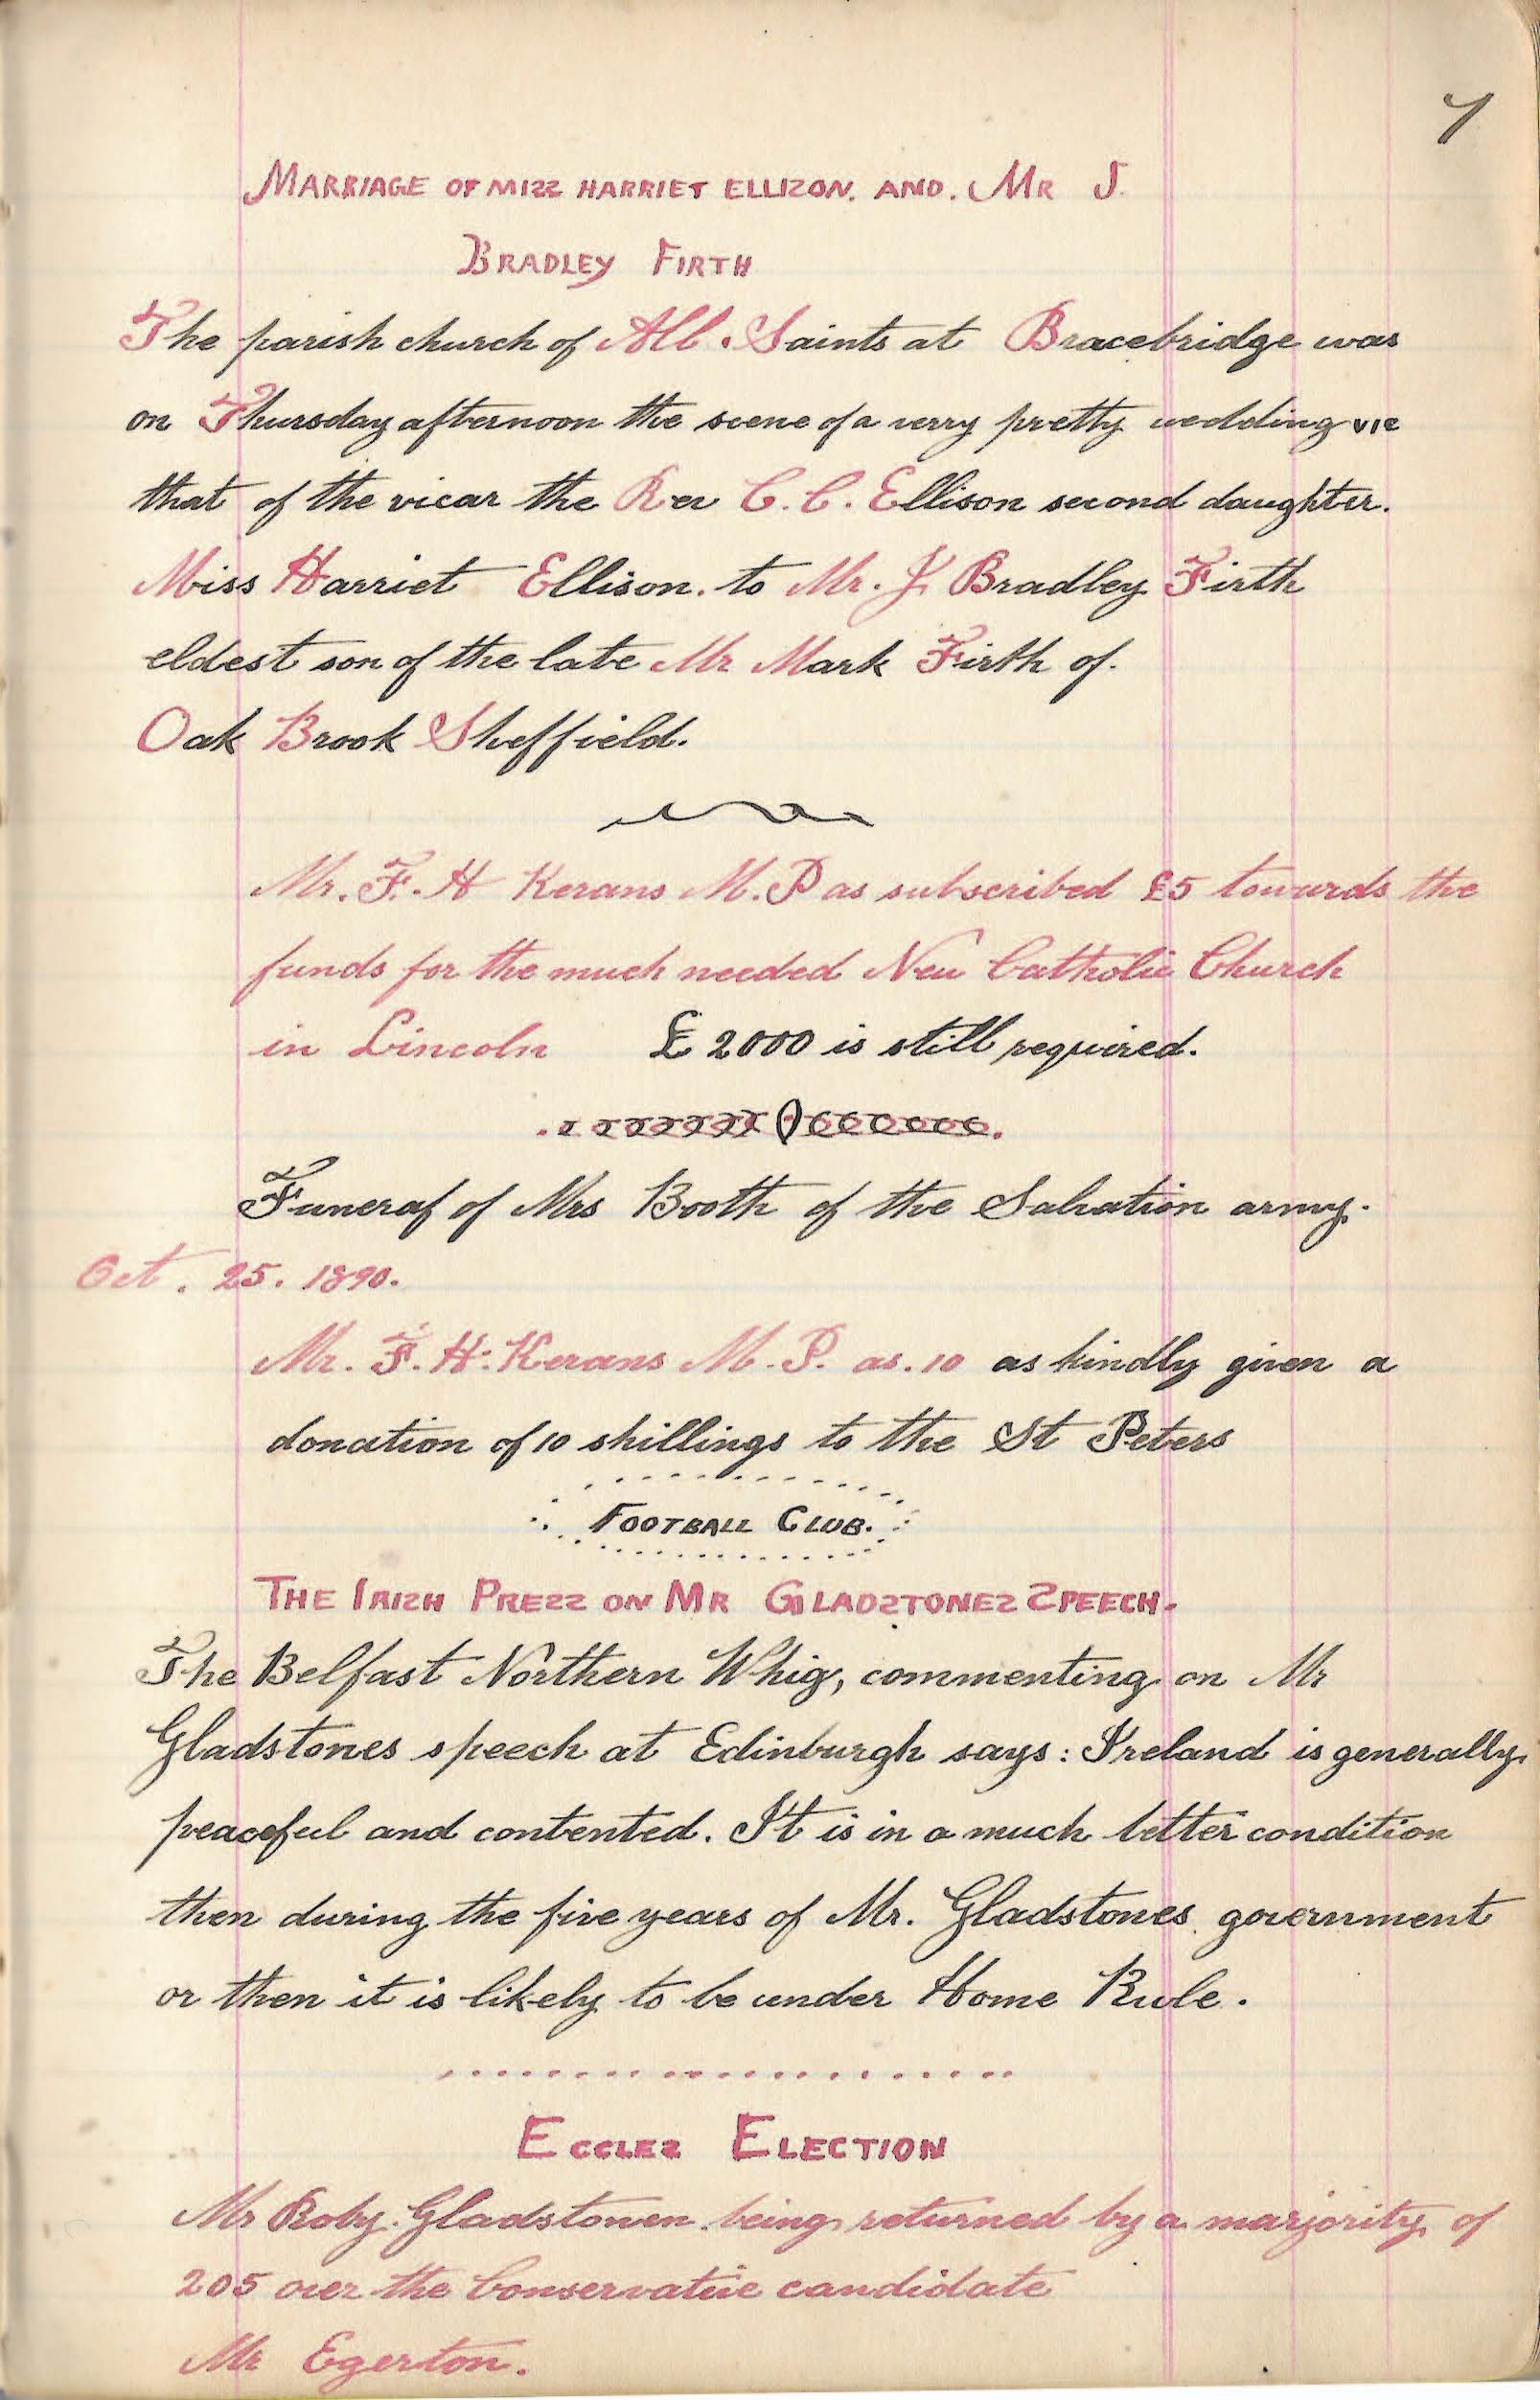 7
MARRIAGE OF MISS HARRIET ELLISON. AND. MR J.
BRADLEY FIRTH
The parish church of All. Saints at Bracebridge was
on Thursday afternoon the scene of a verry pretty wedding vie
that of the vicar the Rev C. C. Ellison second daughter.
Miss Harriet Ellison. to Mr. J Bradley Firth
eldest son of the late Mr Mark Firth of.
Oak Brook Sheffield.
Mr. F. H Kerans M.P as subscribed £5 towards the
funds for the much needed New Catholic Church
in Lincoln £2000 is still required.
Funeral of Mrs Booth of the Salvation army.
Oct. 25. 1890.
Mr. F. H. Kerans M.P. as. 10 as kindly given a
donation of 10 shillings to the St Peters
FOOTBALL CLUB.
THE IRISH PRESS ON MR GLADSTONES SPEECH.
The Belfast Northern Whig, commenting on Mr
Gladstones speech at Edinburgh says: Ireland is generally
peaceful and contented. It is in a much better condition
then during the five years of Mr. Gladstones government
or then it is likely to be under Home Rule.
ECCLES ELECTION
Mr Roby. Gladstonen. being returned by a marjority of
205 over the Conservative candidate
Mr Egerton.